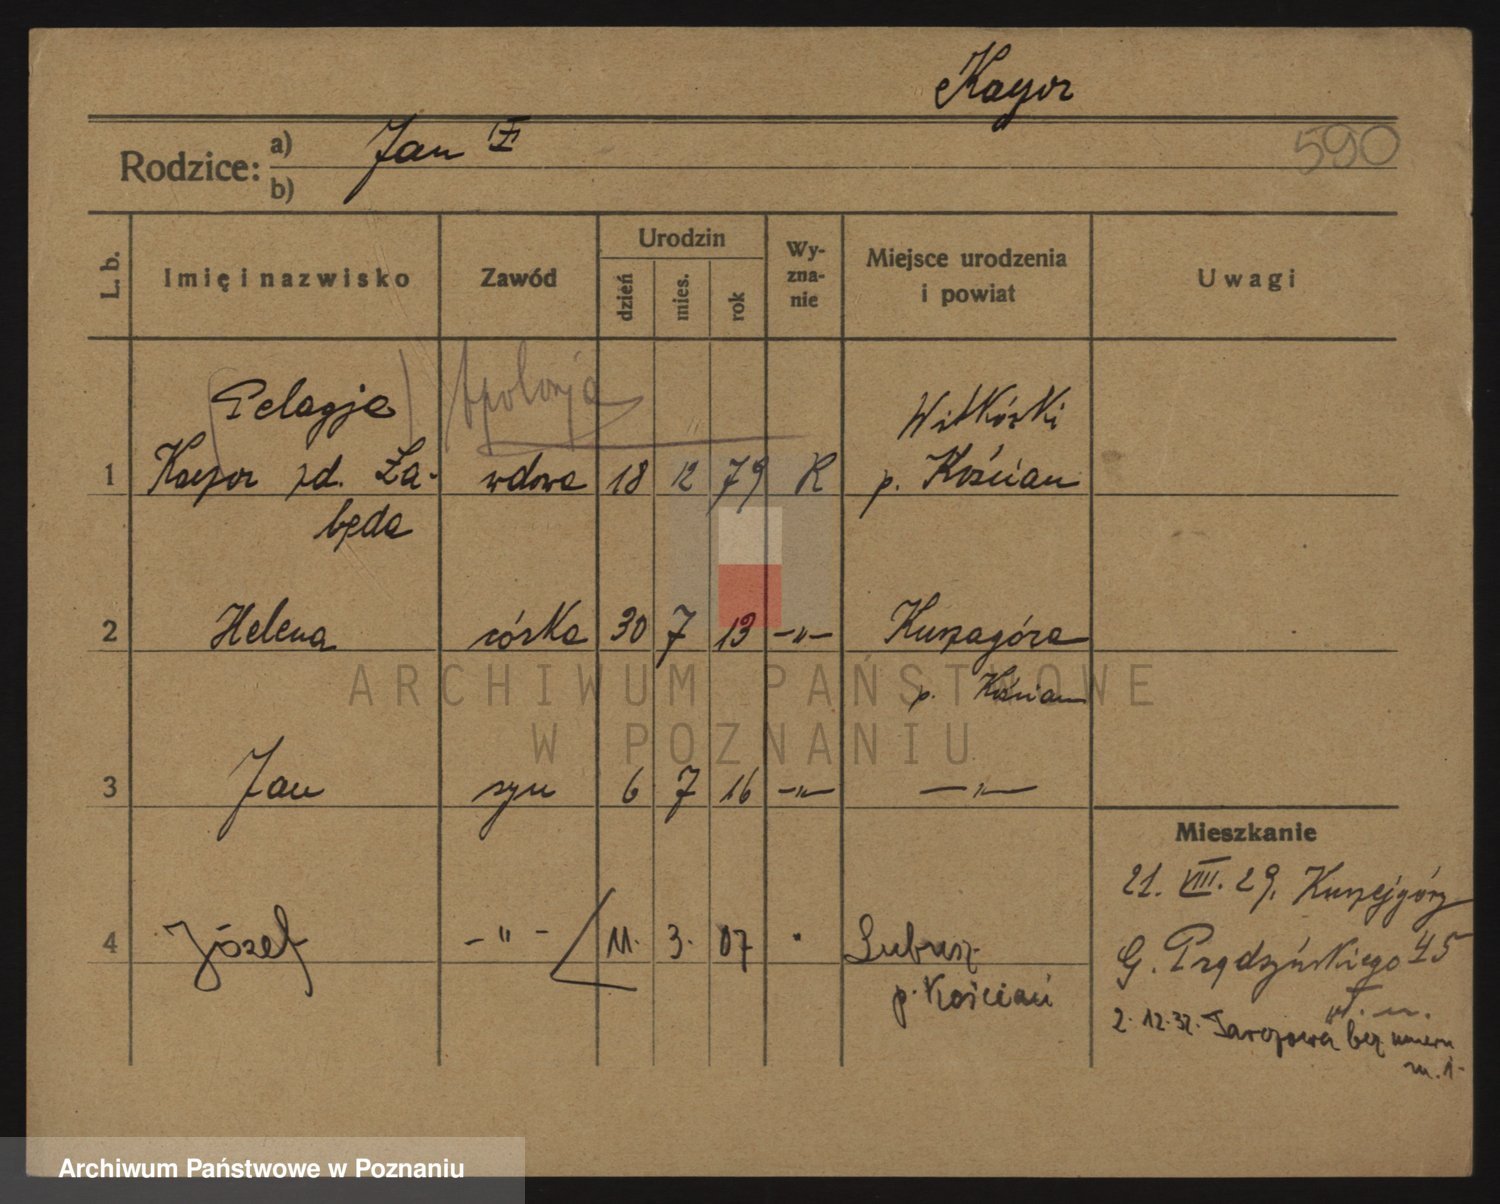 Kayor
Rodzice: a) Jan
b)
590
L. b. Imię i nazwisko Zawód Urodzin dzień mies. rok Wy-zna-nie Miejsce urodzenia i powiat Uwagi
Pelagja Apolonja Witkówki
1 Kayor zd. Ła- wdowa 18 12 79 R p. Kościan
będa
2 Helena córka 30 7 13 -"- Kurzagóra
p. Kościan
3 Jan syn 6 7 16 -"- -"-
Mieszkanie
21. VIII. 29. Kurzejgóry
4 Józef -"- 11. 3. 07 " Lubusz
p. Kościań
G. Prądzyńskiego 45
2.12.32. bez numeru
m. 1-
ARCHIWUM PAŃSTWOWE
W POZNANIU
Archiwum Państwowe w Poznaniu